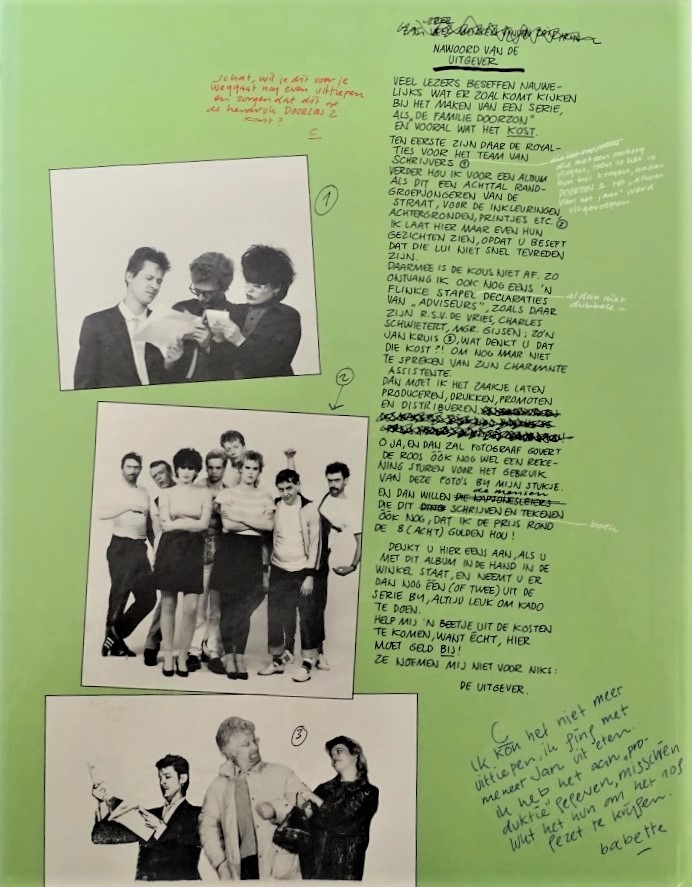 NAWOORD VAN DE
UITGEVER
Schat, wil je dit voor je
weggaat nog even uittiepen
en zorgen dat dit op
de hendruk DOORZON 2
komt?
C
VEEL LEZERS BESEFFEN NAUWE-
LIJKS WAT ER ZOAL KOMT KIJKEN
BIJ HET MAKEN VAN EEN SERIE,
ALS „DE FAMILIE DOORZON"
EN VOORAL WAT HET KOST.
TEN EERSTE ZIJN DAAR DE ROYAL-
TIES VOOR HET TEAM VAN
SCHRIJVERS ①
VERDER HOU IK VOOR EEN ALBUM
ALS DIT EEN ACHTTAL RAND-
GROEPJONGEREN VAN DE
STRAAT, VOOR DE INKLEURINGEN,
ACHTERGRONDEN, PRINTJES ETC. ②
IK LAAT HIER MAAR EVEN HUN
GEZICHTEN ZIEN, OPDAT U BESEFT
DAT DIE LUI NIET SNEL TEVREDEN
ZIJN.
DAARMEE IS DE KOUS NIET AF. ZO
ONTVANG IK OOK NOG EENS 'N
FLINKE STAPEL DECLARATIES
VAN „ADVISEURS", ZOALS DAAR
ZIJN R.S.V. DE VRIES, CHARLES
SCHWIETERT, MGR. GIJSEN; ZO'N
JAN KRUIS ③, WAT DENKT U DAT
DIE KOST?! OM NOG MAAR NIET
TE SPREKEN VAN ZIJN CHARMANTE
ASSISTENTE.
DAN MOET IK HET ZAAKJE LATEN
PRODUCEREN, DRUKKEN, PROMOTEN
EN DISTRIBUEREN
O JA, EN DAN ZAL FOTOGRAAF GOVERT
DE ROOS ÓÓK NOG WEL EEN REKE-
NING STUREN VOOR HET GEBRUIK
VAN DEZE FOTO'S BIJ MIJN STUKJE.
EN DAN WILLEN de mensen
DIE DIT SCHRIJVEN EN TEKENEN
ÓÓK NOG, DAT IK DE PRIJS ROND
DE 8 (ACHT) GULDEN HOU!
DENKT U HIER EENS AAN, ALS U
MET DIT ALBUM IN DE HAND IN DE
WINKEL STAAT, EN NEEMT U ER
DAN NOG ÉÉN (OF TWEE) UIT DE
SERIE BIJ, ALTIJD LEUK OM KADO
TE DOEN.
HELP MIJ 'N BEETJE UIT DE KOSTEN
TE KOMEN, WANT ÉCHT, HIER
MOET GELD BIJ!
ZE NOEMEN MIJ NIET VOOR NIKS:
DE UITGEVER.
al dan niet
dubbele
①
②
③
C
Ik kon het niet meer
uittiepen, ik ging met
meneer Jan uit eten.
ik heb het aan „pro-
duktie" gegeven, misschien
lukt het hun om het nog
gezet te krijgen.
babette